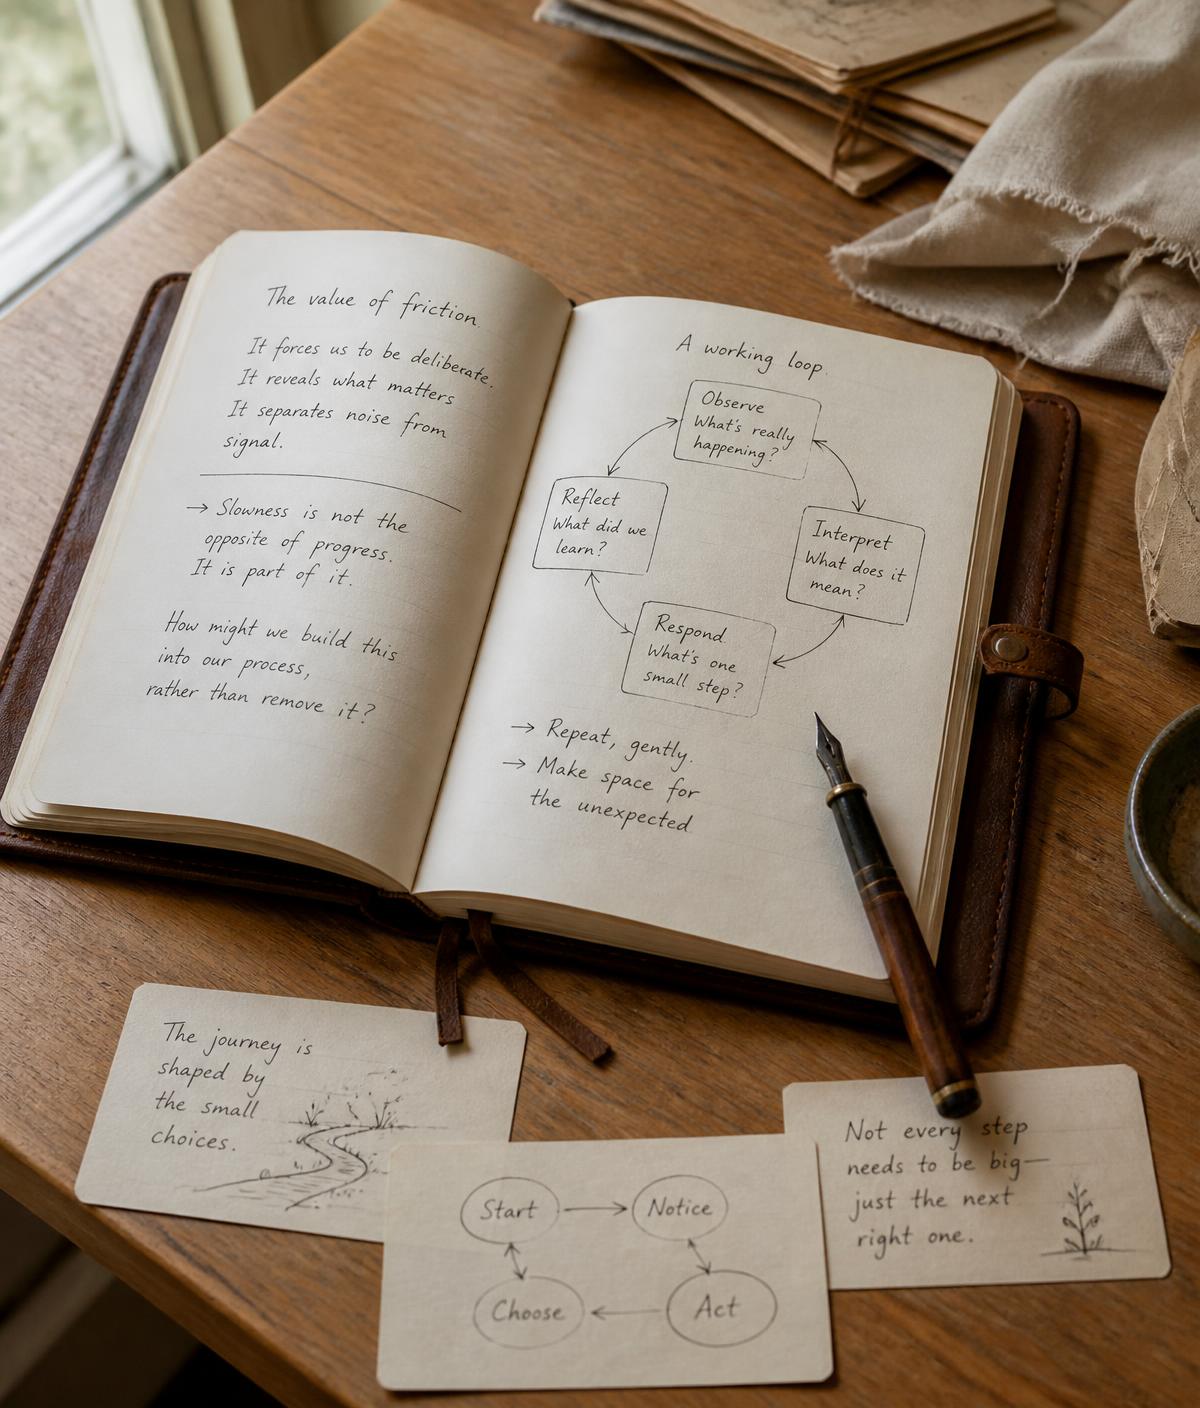 The value of friction.
It forces us to be deliberate.
It reveals what matters
It separates noise from
signal.
→ Slowness is not the
opposite of progress.
It is part of it.
How might we build this
into our process,
rather than remove it?
A working loop.
Observe
What's really
happening?
Reflect
What did we
learn?
Interpret
What does it
mean?
Respond.
What's one
small step?
→ Repeat, gently.
→ Make space for
the unexpected
The journey is
shaped by
the small
choices.
Start
Notice
Choose
Act
Not every step
needs to be big—
just the next
right one.